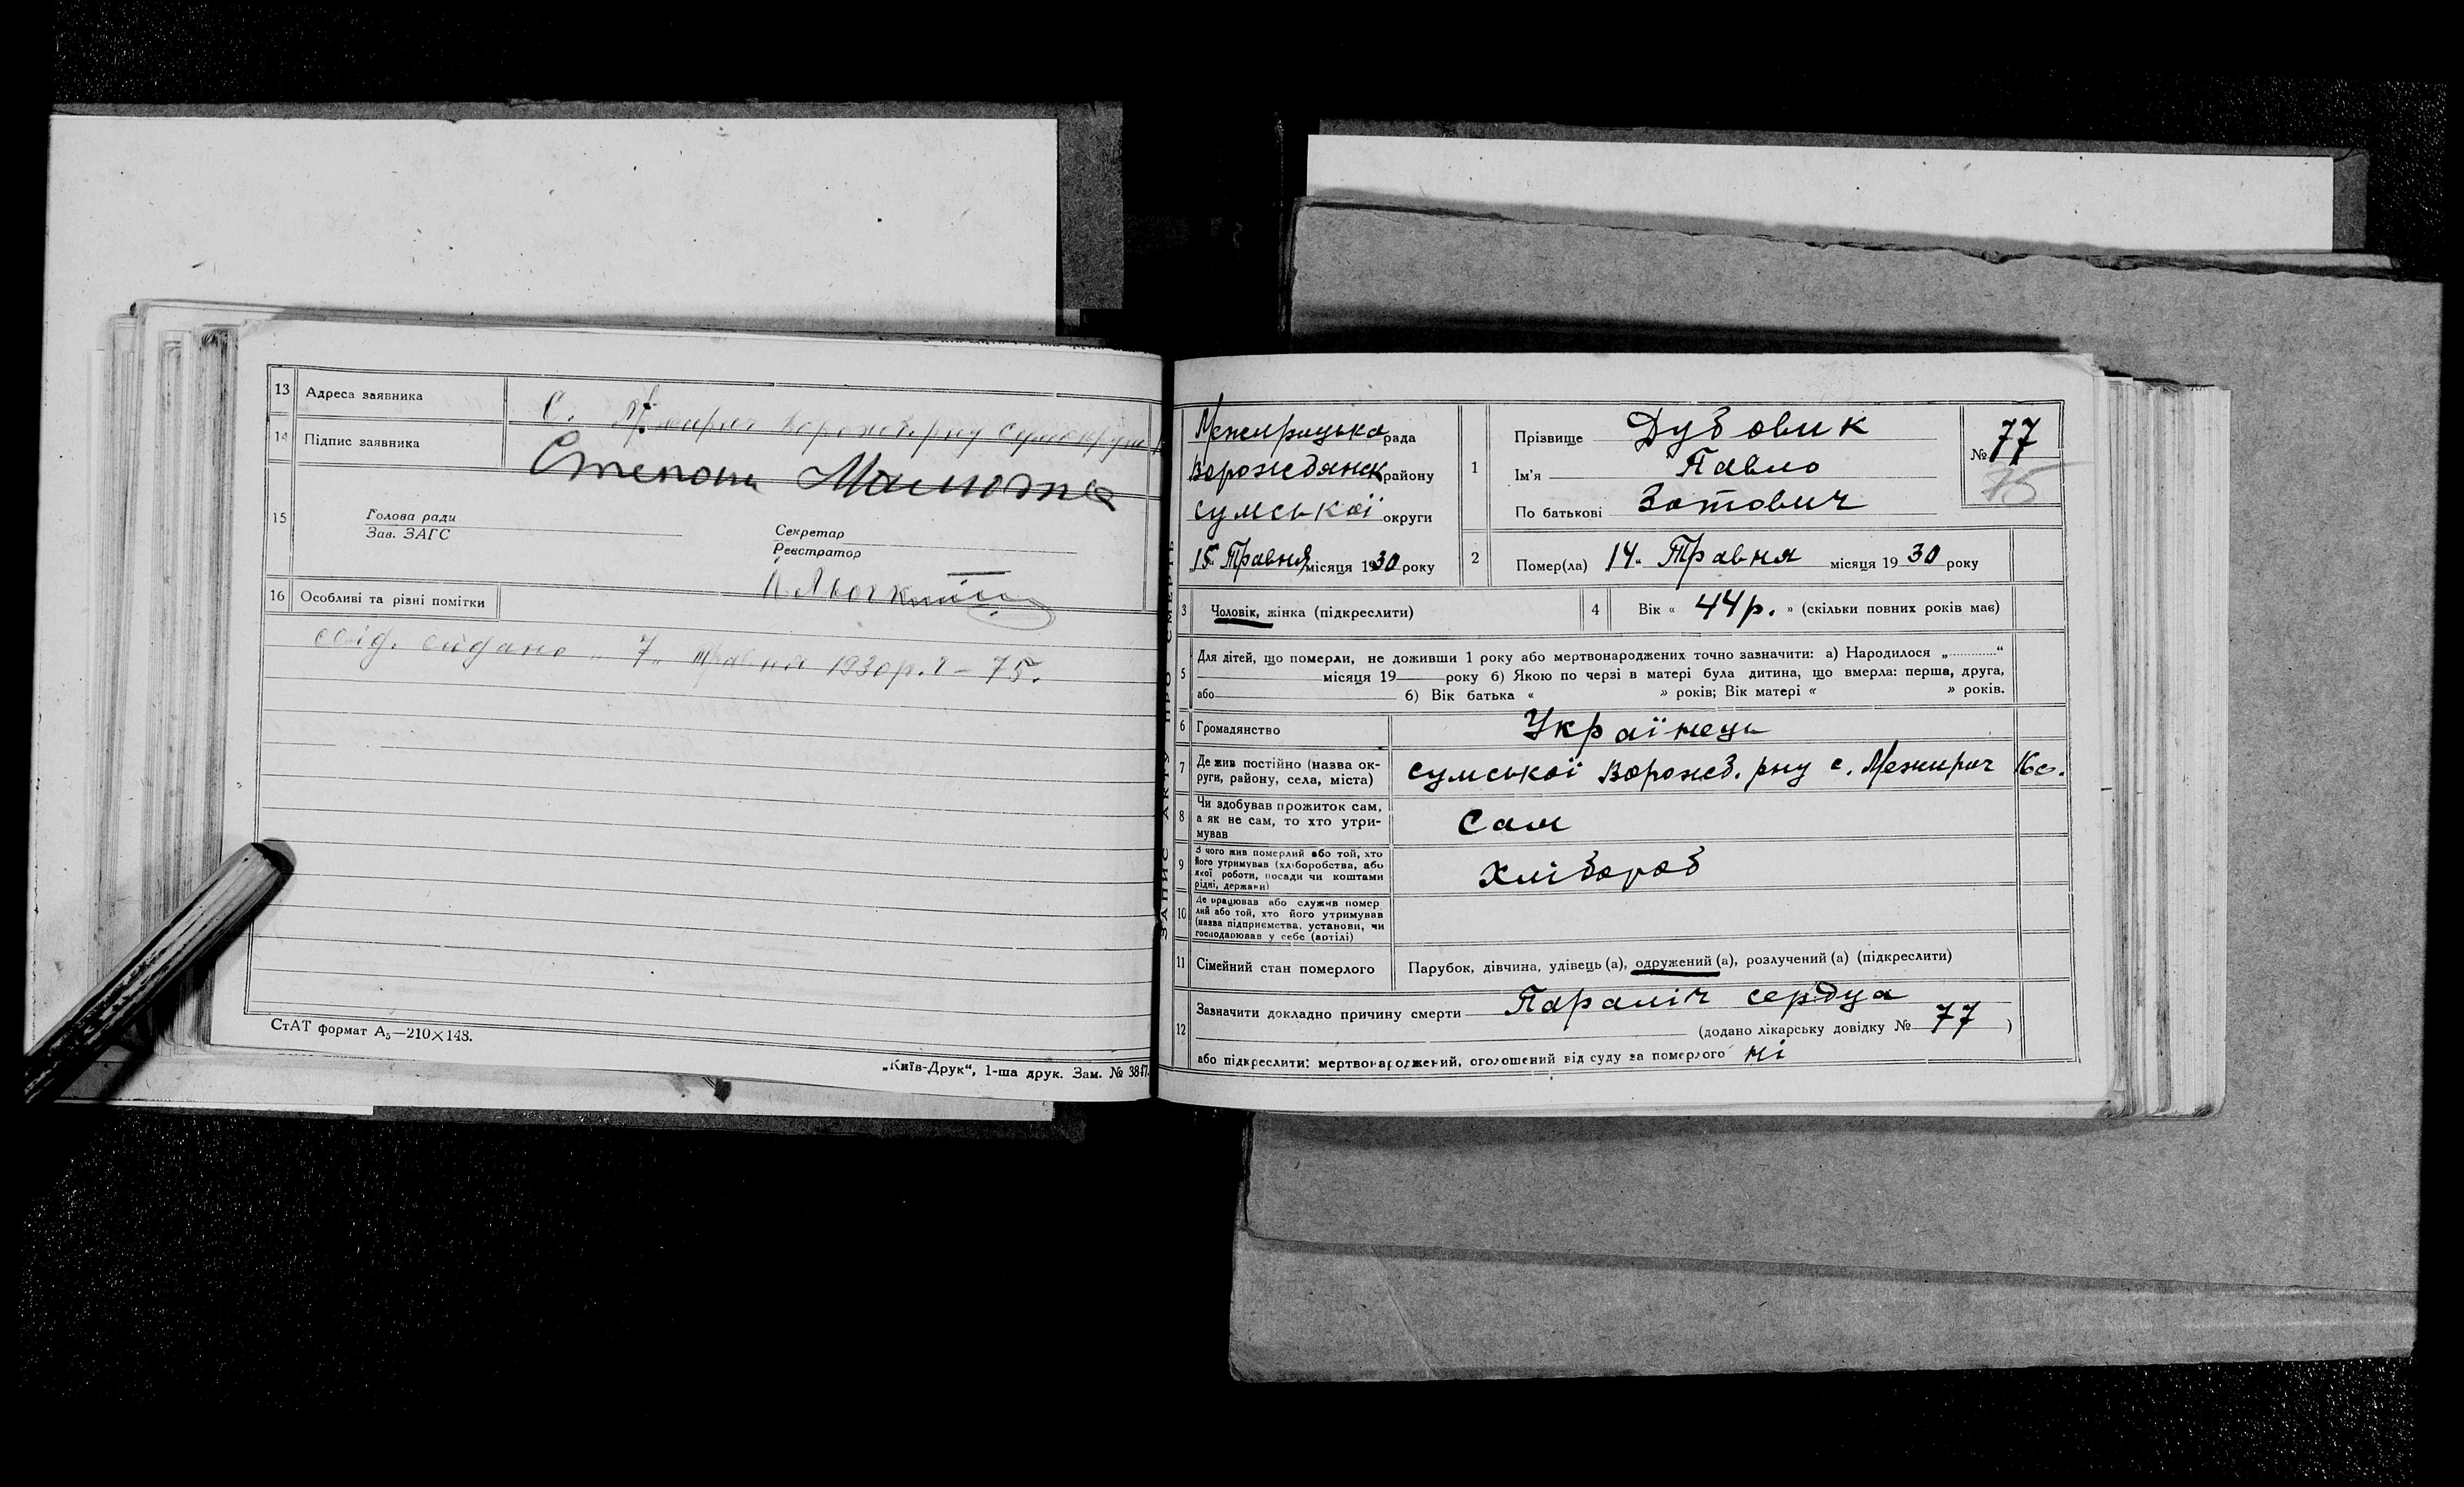 13 Адреса заявника С. Межирич Ворожб. рну Сумокруги
14 Підпис заявника Степан
15 Голова ради
Зав. ЗАГС
Секретар
Реєстратор
16 Особливі та різні помітки
свід. видано „7„ травня 1930 р. № 75.
СтАТ формат А₅—210×148.
„Київ-Друк“, 1-ша друк. Зам. № 3847.
ЗАПИС АКТУ ПРО СМЕРТЬ
Межирицька рада
Ворожбянськ району
Сумської округи
„15„ Травня місяця 1930 року
1 Прізвище Дубовик
Ім'я Павло
По батькові Зотович
№ 77
75
2 Помер(ла) „14„ Травня місяця 1930 року
3 Чоловік, жінка (підкреслити)
4 Вік « 44 р. » (скільки повних років має)
5 Для дітей, що померли, не доживши 1 року або мертвонароджених точно зазначити: а) Народилося „............“
місяця 19 року б) Якою по черзі в матері була дитина, що вмерла: перша, друга,
або б) Вік батька « » років; Вік матері « » років.
6 Громадянство Українець
7 Де жив постійно (назва округи, району, села, міста) Сумської Ворожб. рну с. Межирич
8 Чи здобував прожиток сам,
а як не сам, то хто утри-
мував Сам
9 З чого жив померлий або той, хто
його утримував (хліборобства, або
якої роботи, посади чи коштами
рідні, держави) Хлібороб
10 Де працював або служив помер
лий або той, хто його утримував
(назва підприємства, установи, чи
господарював у себе (артілі)
11 Сімейний стан померлого Парубок, дівчина, удівець (а), одружений (а), розлучений (а) (підкреслити)
12 Зазначити докладно причину смерти Параліч сердца
(додано лікарську довідку № 77 )
або підкреслити: мертвонароджений, оголошений від суду за померлого ні